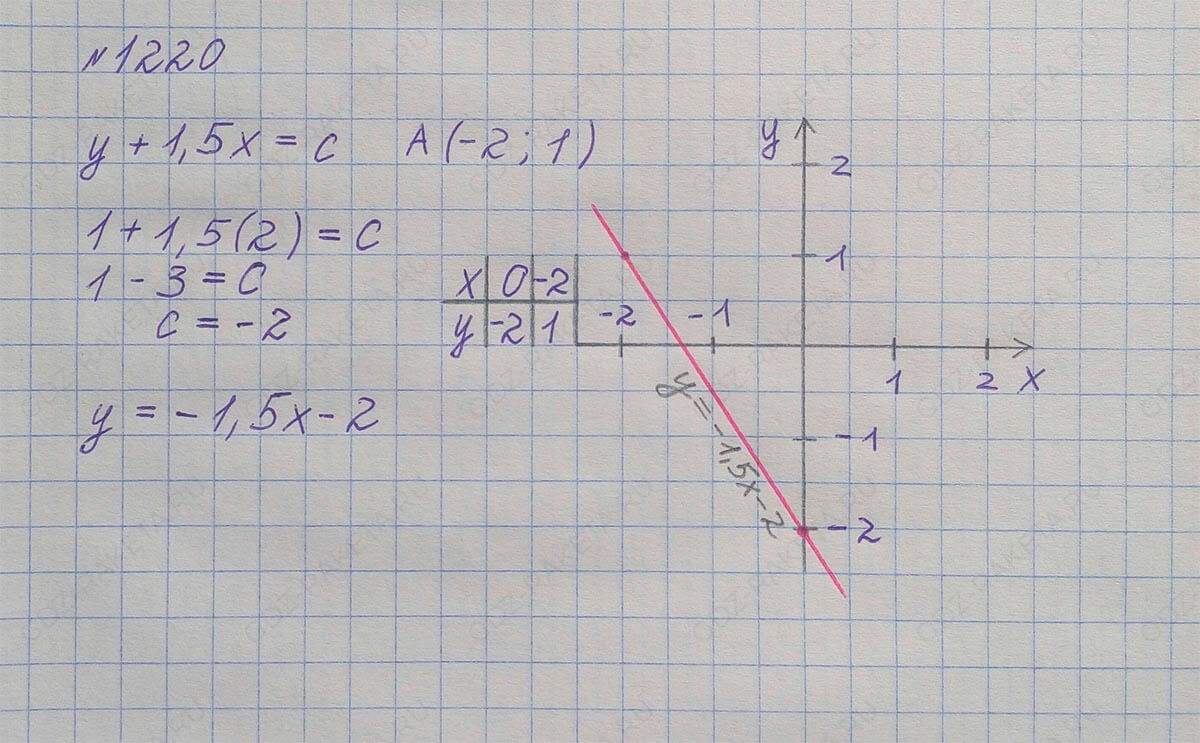 №1220
y + 1,5x = c   A (-2; 1)
1 + 1,5(2) = C
1 - 3 = C
c = -2
y = -1,5x - 2
x | 0 | -2
y | -2 | 1
y
2
1
-2 -1
1 2 x
-1
-2
y = -1,5x - 2
GDZ-RAKETA.RU